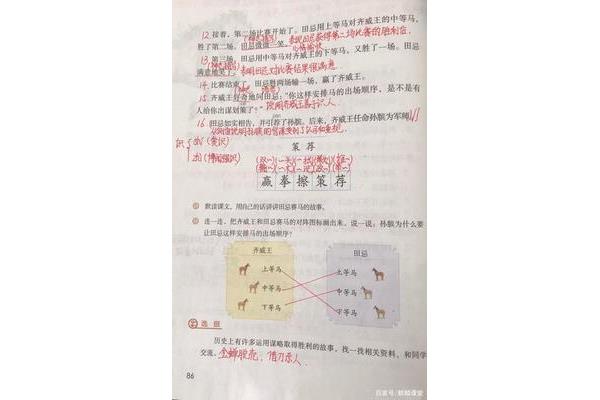 12 接着，第二场比赛开始了。田忌用上等马对齐威王的中等马，
胜了第二场。田忌微微一笑。
13 第三场，田忌用中等马对齐威王的下等马，又胜了一场。田忌
满意地笑了。表明田忌对比赛结果很满意
14. 比赛结束了。田忌胜两场输一场，赢了齐威王。
15. 齐威王好奇地问田忌："你这样安排马的出场顺序，是不是有
人给你出谋划策了？"说明齐威王善于识人
16. 田忌如实相告，并引荐了孙膑。后来，齐威王任命孙膑为军师
策 荐
赢 拳 擦 策 荐
默读课文，用自己的话讲讲田忌赛马的故事。
连一连，把齐威王和田忌赛马的对阵图标画出来，说一说：孙膑为什么要
让田忌这样安排马的出场顺序？
齐威王 田忌
上等马 上等马
中等马 中等马
下等马 下等马
选做
历史上有许多运用谋略取得胜利的故事，找一找相关资料，和同学
交流。金蝉脱壳、借刀杀人
86
百家号/麒麟课堂